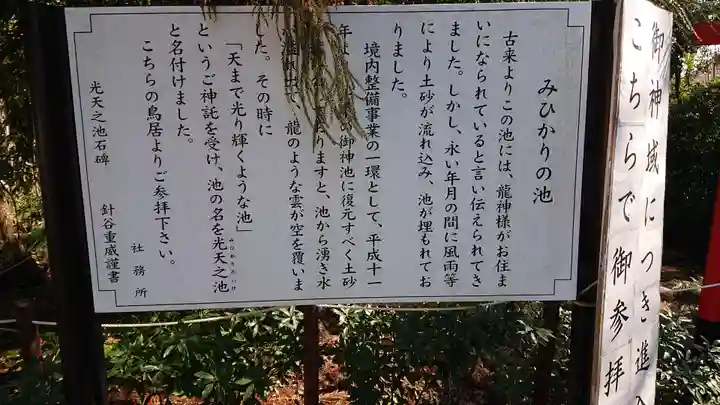 みひかりの池
古来よりこの池には、龍神様がお住ま
いになられていると言い伝えられてき
ました。しかし、永い年月の間に風雨等
により土砂が流れ込み、池が埋もれてお
りました。
境内整備事業の一環として、平成十一
年よ の御神池に復元すべく土砂
りますと、池から湧き水
龍のような雲が空を覆いま
した。その時に
「天まで光り輝くような池」
というご神託を受け、池の名を光天之池
と名付けました。
こちらの鳥居よりご参拝下さい。
社務所
光天之池石碑 針谷重威謹書
御神域につき進入
こちらで御参拝